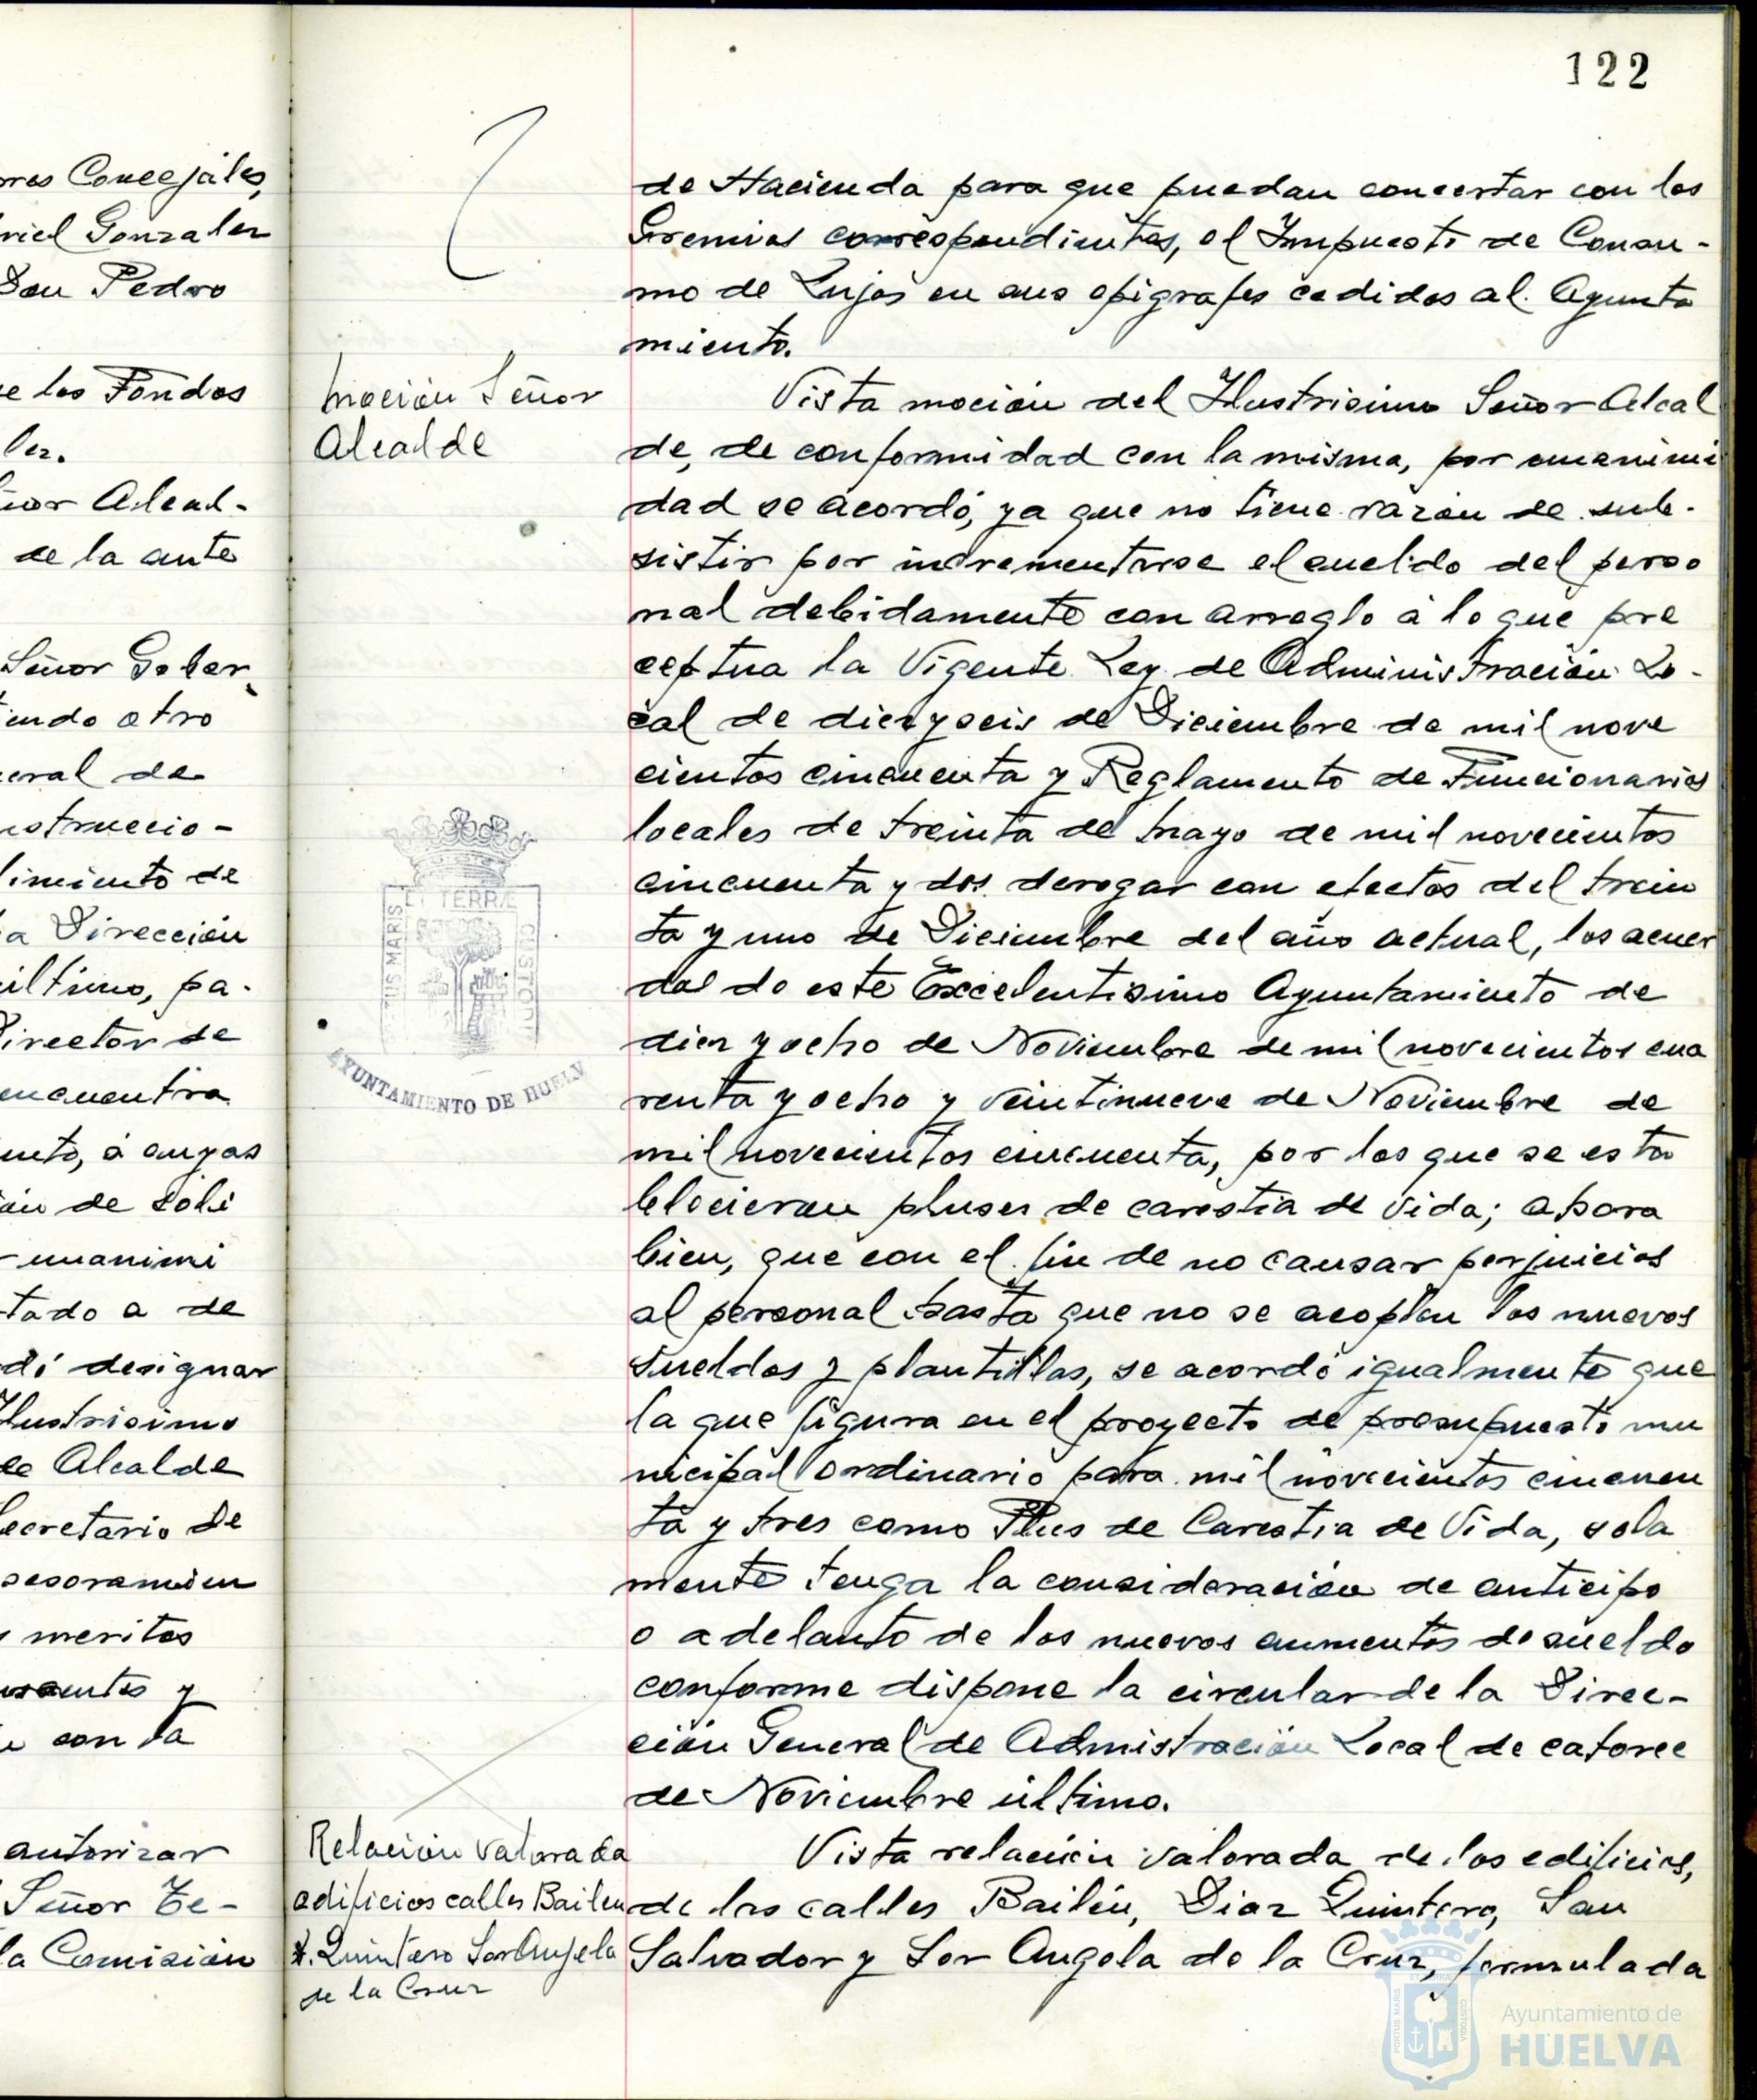 122
ores Concejales,
riel Gonzalez
Don Pedro
e los Fondos
lez.
ñor Alcal-
de la ante
Señor Gober
endo otro
eral de
nstruccio-
limiento de
a Dirección
último, pa-
Director de
encuentra
ento, á cuyas
ón de soli
unanimi
tado a de
dó designar
Ilustrisimo
de Alcalde
Secretario de
sesoramien
meritos
y
con la
autorizar
Señor Te-
la Comisión
Moción Señor
Alcalde
ET TERRÆ
PORTUS MARIS
CUSTODIA
AYUNTAMIENTO DE HUELV
Relación valorada
edificios calles Bailen
D. Quintero Sor Angela
de la Cruz
de Hacienda para que puedan concertar con los
Gremios correspondientes, el Impuesto de Consu-
mo de Lujos en sus epigrafes cedidos al Ayunta
miento.
Vista moción del Ilustrisimo Señor Alcal
de, de conformidad con la misma, por unanimi
dad se acordó, ya que no tiene razón de sub-
sistir por incrementarse el sueldo del perso
nal debidamente con arreglo a lo que pre
ceptua la Vigente Ley de Administración Lo-
cal de diez y seis de Diciembre de mil nove
cientos cincuenta y Reglamento de Funcionarios
locales de treinta de Mayo de mil novecientos
cincuenta y dos derogar con efectos del trein
ta y uno de Diciembre del año actual, los acuer
dos de este Excelentisimo Ayuntamiento de
diez y ocho de Noviembre de mil novecientos cua
renta y ocho y veintinueve de Noviembre de
mil novecientos cincuenta, por los que se esta
blecieron pluses de carestia de vida; ahora
bien, que con el fin de no causar perjuicios
al personal hasta que no se acoplen los nuevos
sueldos y plantillas, se acordó igualmente que
la que figura en el proyecto de presupuesto mu
nicipal ordinario para mil novecientos cincuen
ta y tres como Plus de Carestia de Vida, sola
mente tenga la consideración de anticipo
o adelanto de los nuevos aumentos de sueldo
conforme dispone la circular de la Direc-
ción General de Admistración Local de catorce
de Noviembre último.
Vista relación valorada de los edificios,
de las calles Bailén, Diaz Quintero, San
Salvador y Sor Angela de la Cruz, formulada
Ayuntamiento de
HUELVA